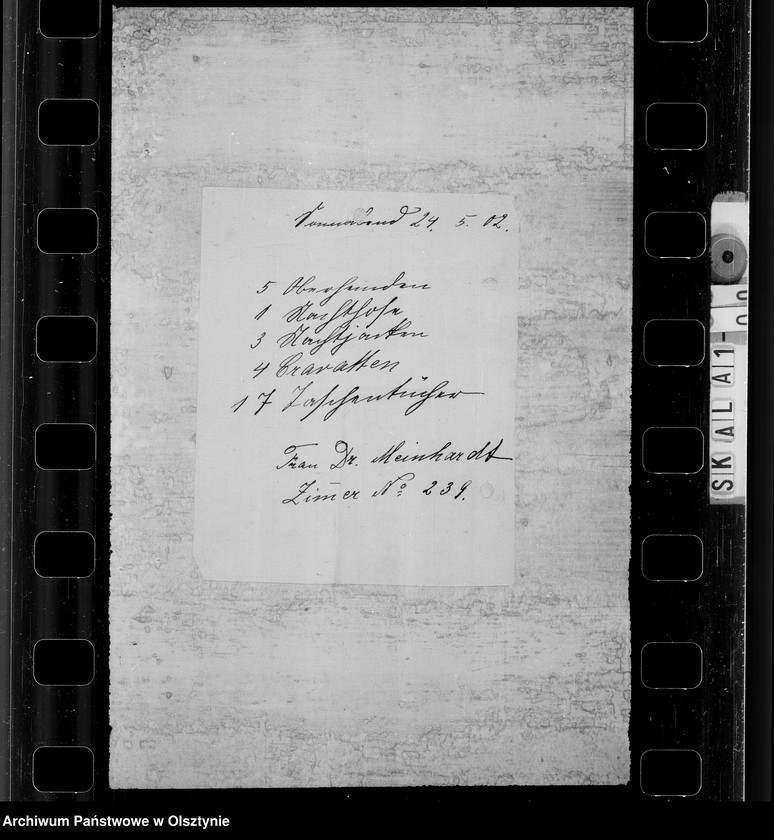 Sonnabend 24. 5. 02.
5 Oberhemden
1 Nachthose
3 Nachtjacken
4 Cravatten
17 Taschentücher
Frau Dr. Meinhardt
Zim̅er No 239.
SKALA 1-
Archiwum Państwowe w Olsztynie